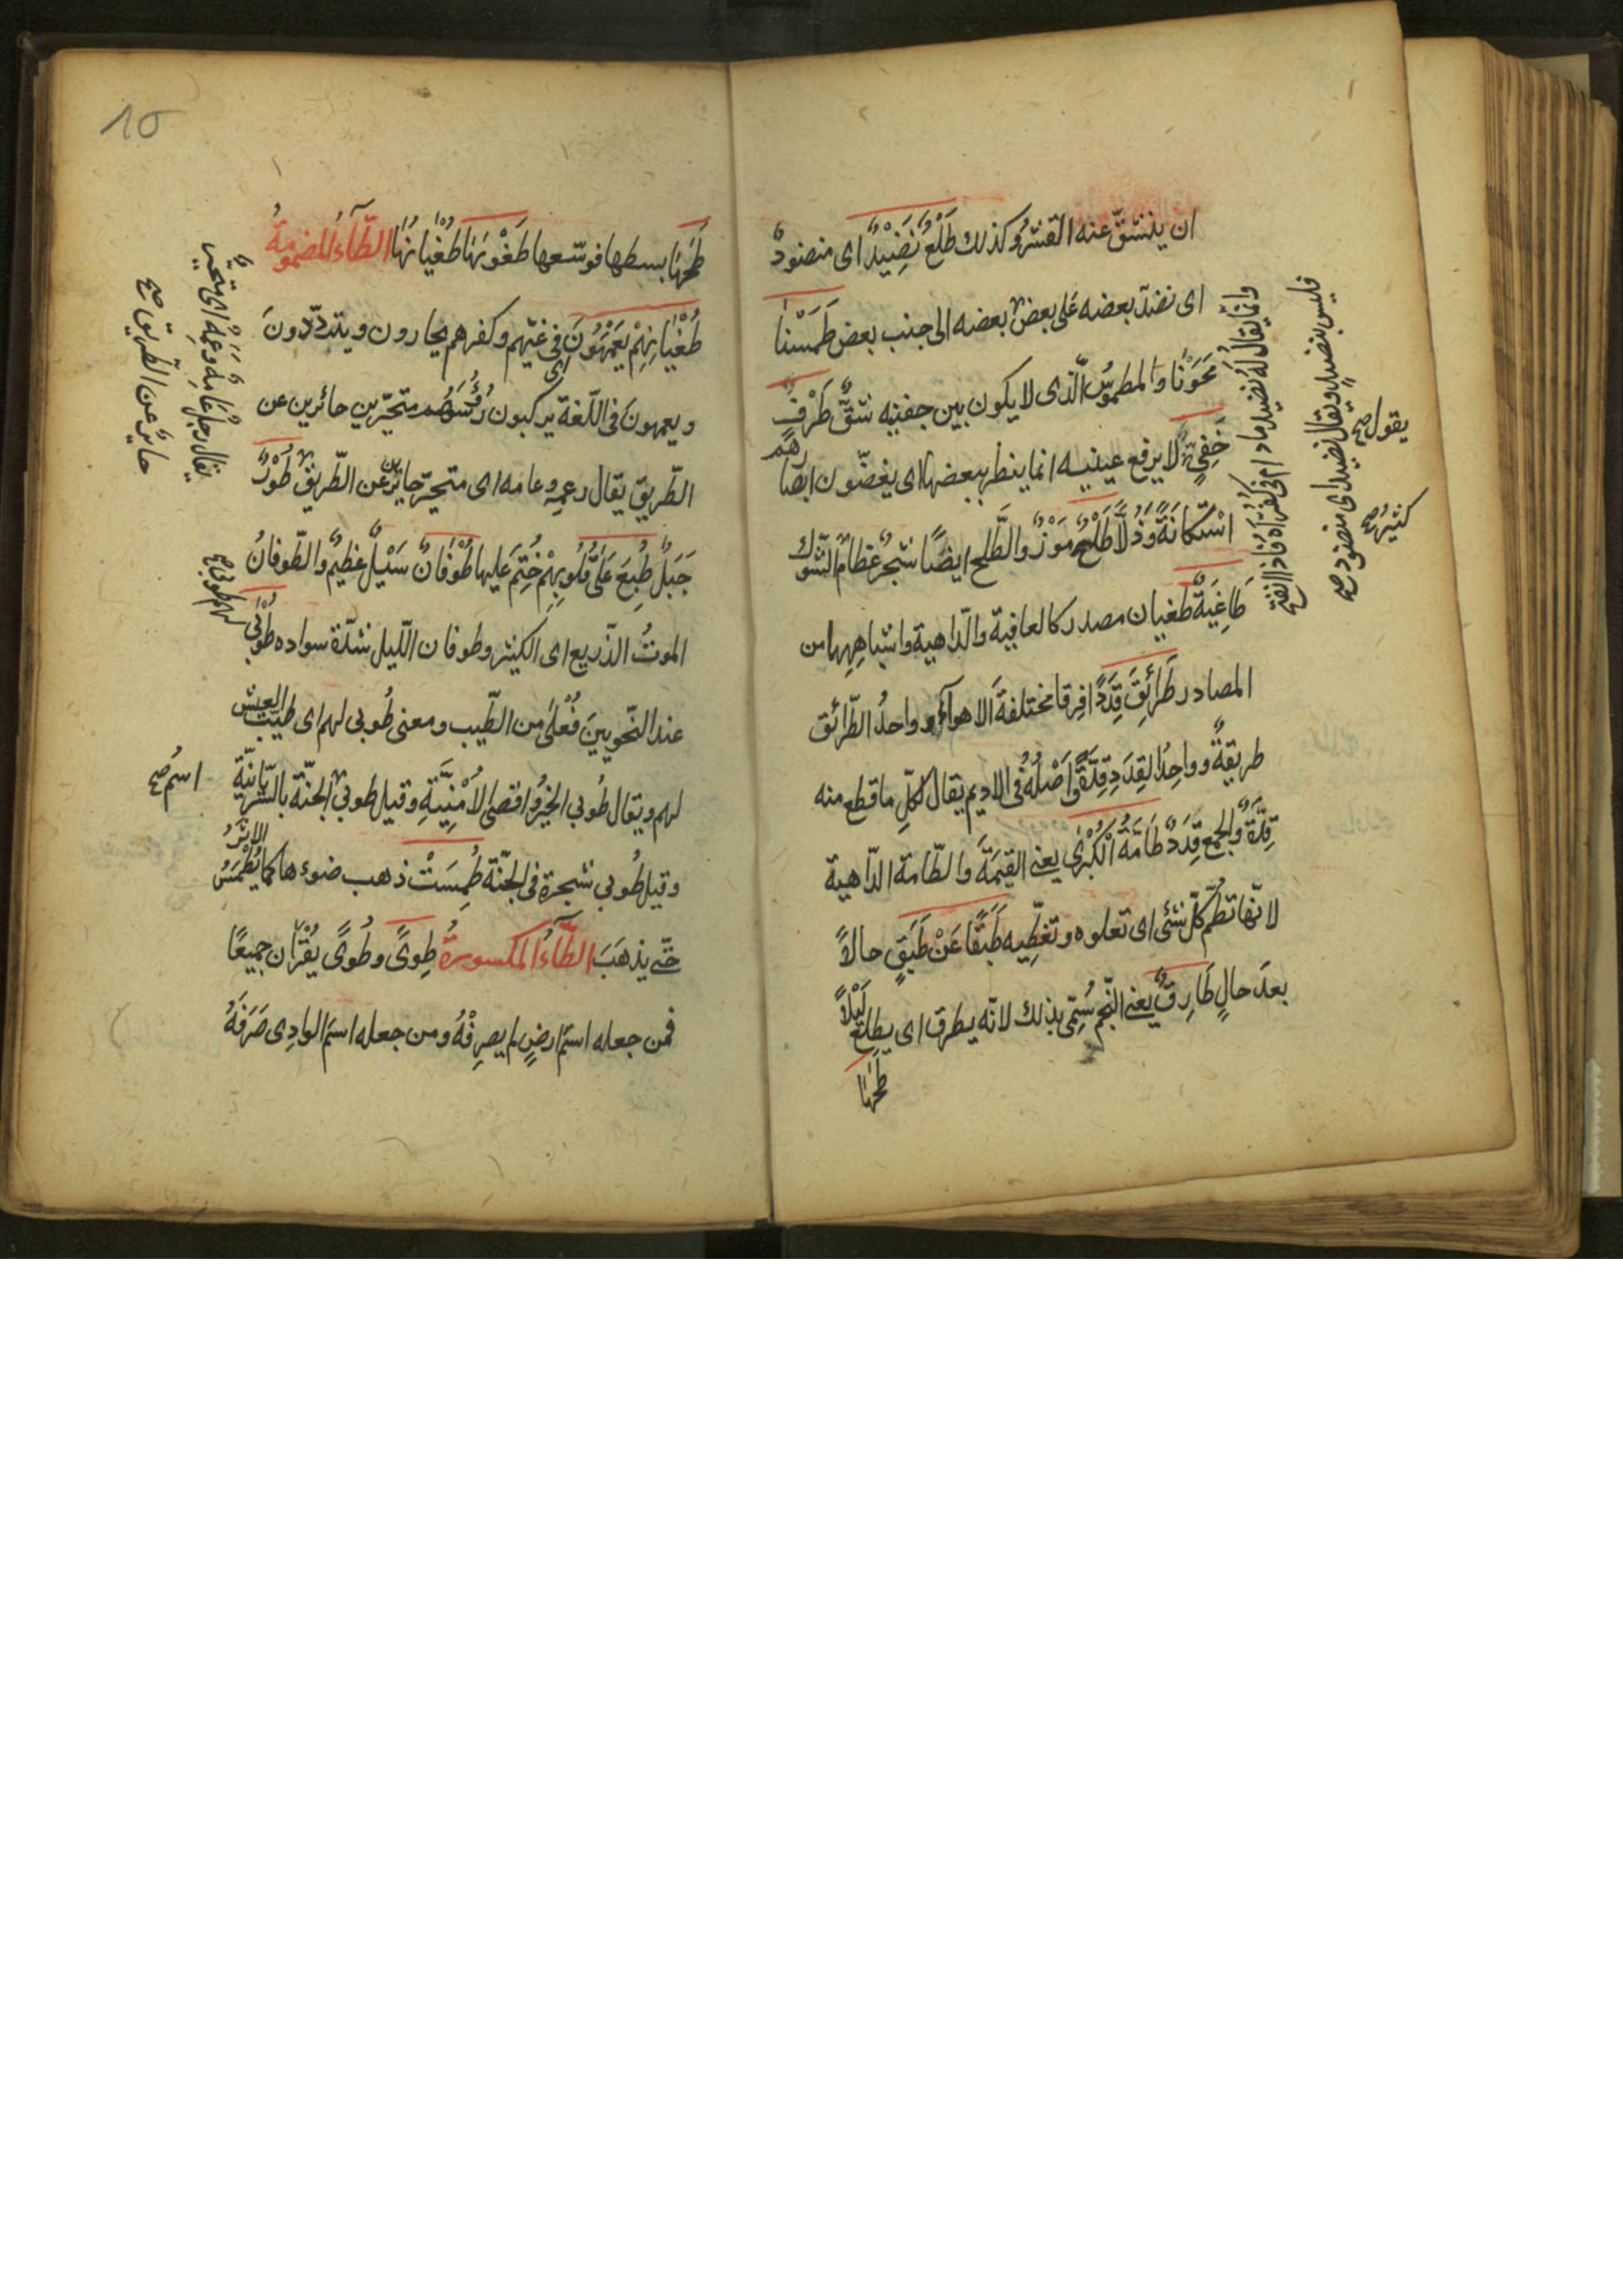 ان ينشقّ عنه القشر وكذلك طَلْعٌ نَضِيْدٌ اى منضودٌ
اى نضدّ بعضه عَلى بعض بعضه الى جنب بعض طَمَسْنا
مَحَوْنا وَالمطموسُ الّذى لا يكون بين جفنيه شقٌّ طَرْفٍ
خَفِيٍّ لا يرفع عينيه انما ينظر ببعضها اى يغضّون ابصارهم
اسْتكانَةً وَذُلاًّ طَلْحٌ مَوْزٌ والطّلح ايضًا شجرٌ عظامٌ الشّوك
طَاغِيَةٌ طغيان مصدر كالعافية والدّاهية واشباهِهِها من
المصادر طَرَائِقَ قِدَدًا فِرقا مختلفةَ الاهوآء وواحدُ الطّرائق
طريقةٌ وواحِدُ القِدَدِ قِدّةٌ وَاَصْلُهُ فى الاديم يقال لكلّ ما قطع منه
قِدّةٌ وَالجمع قِدَدٌ طَامّةُ الْكُبْرٰى يعنى القيمَةَ والطّامة الدّاهية
لانّها تطمّ كلّ شئى اى تعلوه وتغطّيه طَبَقًا عَنْ طَبَقٍ حالاً
بعدَ حالٍ طَارِقٌ يعنى النّجم سُمِّى بذلك لانّه يطرق اى يطلع لَيْلاً
طَحٰهَا
وانّما يقالُ لهُ نضيد مادام فى كُفُرّاه فاذا انفتح
فليس بنضيدٍ ويقال نضيد اى منضود صح
يقول صح
كثيرُ صح
10
طَحٰهَا بسطها فوسّعها طَغْوٰىهَا طُغْيٰانهَا الطّآءُ المضمومةُ
طُغْيٰانِهِمْ يَعْمَهُونَ اى فى غيّهم وكفرهم يحارون ويتردّدونَ
ويعمهونَ فى اللّغة يركبون رُؤُسَهُم متحيّرين حائرين عن
الطّريق يقال رعمِهٍ وعامه اى متحيّر حايرٌ عن الطّريق طُوْرٌ
جَبَلٌ طُبِعَ عَلٰى قُلُوبِهِمْ خُتِمَ عَليها طُوْفَانٌ سَيْلٌ عَظِيمٌ والطّوفانُ
الموتُ الذّريع اى الكثير وطوفان اللّيل شدّة سواده طُوْبٰى
عند النّحويينَ فُعْلٰى من الطّيب ومعنى طُوبى لهم اى طيّب العيش
لهم ويقال طُوبى الخيرُ واقصى الاُمْنِيَّةِ وقيل طوبى الجنّة بالسّريانيّة
وقيل طُوبى شجرة فى الجنّة طُمِسَتْ ذهب ضوءها كما يُطْمَسُ الاثرُ
حتّى يذهَبَ الطّآءُ المكسورةُ طِوًى وطُوًى يُقْرَأن جميعًا
فمن جعله اسمَ ارضٍ لم يصرِفْهُ ومن جعله اسمَ الوادِى صَرَفَهُ
يقال رجلٌ عَامِهٌ وعَمِهٌ اى متحيّرٌ
حايرٌ عن الطّريق صح
اسمُ صح